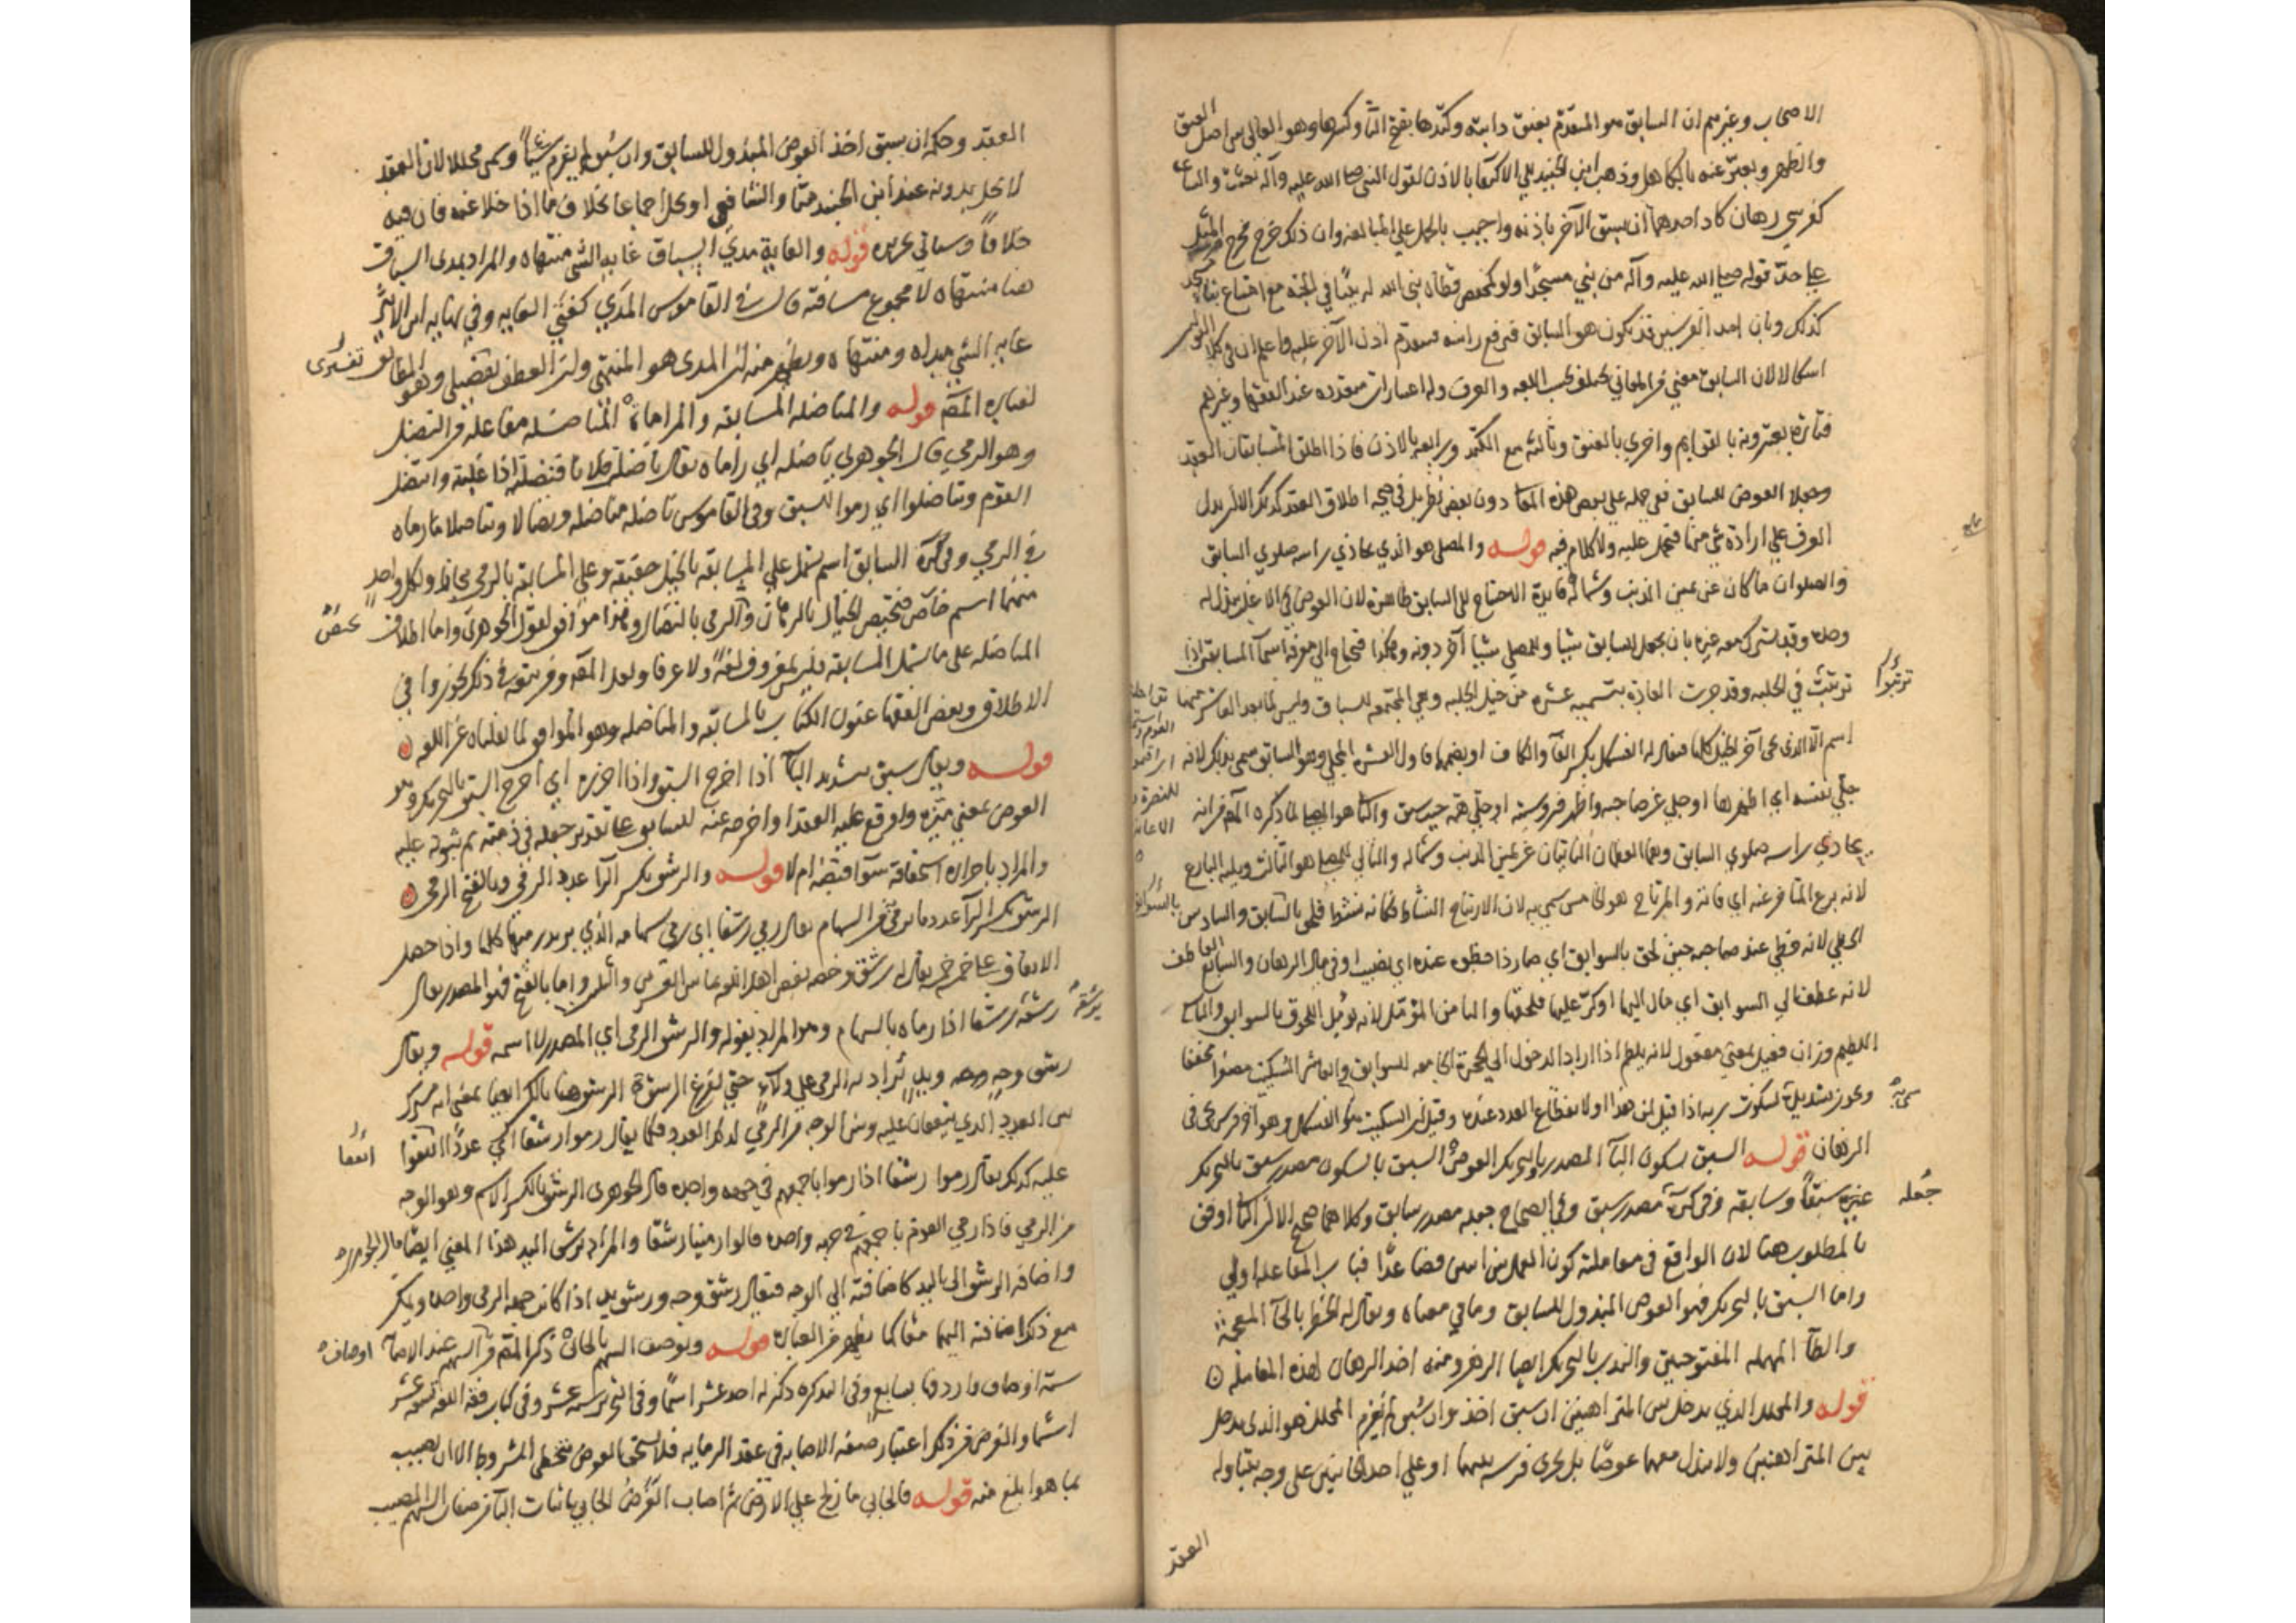 الاصحاب وغيرهم ان السابق هو المتقدم بعنق دابته وكتدها بفتح التا وكسرها وهو العالي بين اصل العنق
والظهر ويعبر عنه بالكاهل وذهب ابن الجنيد الى الاكتفا بالاذن لقول النبي صلى الله عليه وآله بعثت والساعة
كفرسي رهان كاد احدهما ان يسبق الآخر باذنه واجيب بالحمل على المبالغة وان ذلك خرج مخرج المثل
على حد قوله صلى الله عليه وآله من بنى مسجدا ولو كمفحص قطاة بنى الله له بيتا في الجنة مع امتناع بناء مسجد
كذلك وبان احد الفرسين قد يكون هو السابق فيرفع راسه فيتقدم اذن الآخر عليه واعلم ان في كلا القولين
اشكالا لان السابق معنى من المعاني يختلف بحسب اللغة والعرف وله اعتبارات متعددة عند الفقها وغيرهم
فتارة يعتبرونه بالقوايم واخرى بالعنق وثالثة مع الكتد ورابعة بالاذن فاذا اطلق المتسابقان العقد
وجعلا العوض للسابق ففي حمله على بعض هذه المعاني دون بعض نظر بل في صحة اطلاق العقد كذلك الا ان يدل
العرف على ارادة شي منها فيحمل عليه ولا كلام فيه قوله والمصلي هو الذي يحاذي راسه صلوي السابق
والصلوان ما كان عن يمين الذنب وشماله فايدة الاحتياج الى السابق ظاهرة لان العوض في الاغلب يبذل له
وحده وقد يشرك معه غيره بان يجعل للسابق شيئا وللمصلي شيئا آخر دونه وهكذا فيحتاج الى معرفة اسماء المسابق اذا
ترتبت في الحلبة وقد جرت العادة بتسمية عشرة من خيل الحلبة وهي المجتمعة للسباق وليس لما بعد العاشر منها
ترتبوا
اسم الا الذي يجي آخر الخيل كلها فيقال له الفسكل بكسر الفا والكاف او بضمهما فاول العشرة المجلي وهو السابق سمي بذلك لانه
جلى نفسه اي اظهرها او جلى عن صاحبه واظهر فروسيته او جلى همه حين سبق والثاني هو المصلي لما ذكره المص من انه
يحاذي راسه صلوي السابق وهما العظمان الناتيان عن يمين الذنب وشماله والتالي للمصلي هو الثالث ويليه البارع
لانه برع المتاخر عنه اي فاته والمرتاح هو الخامس سمي به لان الارتياح النشاط فكانه نشط فلحق بالسابق والسادس
بالسوابق
الحظي لانه حظي عند صاحبه حين لحق بالسوابق اي صار ذا حظوة عنده اي نصيب او في مال الرهان والسابع العاطف
لانه عطف الى السوابق اي مال اليها او كر عليها فلحقها والثامن المؤمل لانه يؤمل اللحوق بالسوابق والتاسع
اللطيم وزان فعيل بمعنى مفعول لانه يلطم اذا اراد الدخول الى الحجرة الجامعة للسوابق والعاشر السكيت مصغرا مخففا
ويجوز تشديده لسكوت ربه اذا قيل لمن هذا او لانقطاع العدد عنده وقيل ان السكيت هو الفسكل وهو آخر فرس يجي في
الرهان قوله السبق بسكون البآ المصدر وبالتحريك العوض السبق بالسكون مصدر سبق بالتحريك
غيره سبقا وسابقه وفي كره مصدر سبق وفي الصحاح جعله مصدر سابق وكلاهما صحيح الا ان الثاني اوفق
جعله
بالمطلوب هنا لان الواقع في معاملته كون العمل من اثنين فصاعدا فباب المفاعلة اولى
واما السبق بالتحريك فهو العوض المبذول للسابق وما في معناه ويقال له الخطر بالخآ المعجمة
والطآ المهملة المفتوحتين والندب بالتحريك ايضا الرهن ومنه اخذ الرهان لهذه المعاملة
قوله والمحلل الذي يدخل بين المتراهنين ان سبق اخذ وان سبق لم يغرم المحلل هو الذي يدخل
بين المتراهنين ولا يبذل معهما عوضا بل يجري فرسه بينهما او على احد الجانبين على وجه يتناوله
العقد
العقد وحكمه ان سبق اخذ العوض المبذول للسابق وان سبق لم يغرم شيئا وسمي محللا لان العقد
لا يحل بدونه عند ابن الجنيد منا والشافعي او يحل اجماعا بخلاف ما اذا خلا عنه فان فيه
خلافا وسياتي تحريره قوله والغاية مدى السباق غاية الشي منتهاه والمراد بمدى السباق
هنا منتهاه لا مجموع مسافته قال في القاموس المدى كفتى الغاية وفي نهاية ابن الاثير
غاية الشي مداه ومنتهاه ويظهر منه ان المدى هو المنتهى وان العطف تفسيري وهو المطابق
تفسيري
لعبارة المص قوله والمناضلة المسابقة والمراماة المناضلة مفاعلة من النضل
وهو الرمي قال الجوهري ناضله اي راماه يقال ناضلت فلانا فنضلته اذا غلبته وانتضل
القوم وتناضلوا اي رموا للسبق وفي القاموس ناضله مناضلة ونضالا وتناضلا باراه
في الرمي وفي كره السابق اسم يشتمل على المسابقة بالخيل حقيقة وعلى المسابقة بالرمي مجازا ولكل واحد
منهما اسم خاص فتختص الخيل بالرهان والرمي بالنضال وهذا موافق لقول الجوهري واما اطلاق
يختص
المناضلة على ما يشمل المسابقة فليس بمعروف لغة ولا عرفا ولعل المص ومن سبقه في ذلك تجوزوا في
الاطلاق وبعض الفقها عنون الكتاب بالمسابقة والمناضلة وهو الموافق لما نقلناه عن اللغه
قوله ويقال سبق بتشديد البآ اذا اخرج السبق واذا احرزه اي اخرج السبق بالتحريك وهو
العوض بمعنى ميزه واوقع عليه العقد او اخرجه عنه للسابق على تقدير جعله في ذمته ثم ثبوته عليه
والمراد باحرازه استحقاقه سوآ قبضه ام لا قوله والرشق بكسر الرآ عدد الرمي وبالفتح الرمي
الرشق بكسر الرآ عدد ما يرمى من السهام يقال رمى رشقا اي رمى سهامه الذي يريد رميها كلها واذا حصل
الاتفاق على خمس خمس يقال له رشق وخصه بعض اهل اللغة بما بين العشرين والثلاثين واما بالفتح فهو المصدر يقال
رشقه رشقا اذا رماه بالسهام وهو المراد بقوله والرشق الرمي اي المصدر لا اسمه قوله ويقال
يرشقه
رشق وجه وجهه ويد يراد به الرمي على ولآء حتى يفرغ الرشق الرشق هنا بالكسر ايضا بمعنى انه مشترك
بين العدد الذي يتفقان عليه وبين الوجه من الرمي لذلك العدد فكما يقال رموا رشقا اي عددا اتفقوا
اتفقا
عليه كذلك يقال رموا رشقا اذا رموا باجمعهم في جهة واحدة قال الجوهري الرشق بالكسر الاسم وهو الوجه
من الرمي فاذا رمى القوم باجمعهم في جهة واحدة قالوا رمينا رشقا والمراد برشق اليد هذا المعنى ايضا قال الجوهري
واضافة الرشق الى اليد كاضافته الى الوجه فيقال رشق وجه ورشق يد اذا كانت جهة الرمي واحدة ويمكن
مع ذلك اضافته اليهما معا كما يظهر من العبارة قوله ويوصف السهم بالحابي ذكر المص من اسهم عند الاصابة
اوصاف
ستة اوصاف واردفها بسابع وفي التذكرة ذكر له احد عشر اسما وفي التحرير ستة عشر وفي كتاب فقه اللغة تسعة عشر
اسما والغرض من ذكرها اعتبار صفة الاصابة في عقد الرماية فلا يستحق العوض مخطي المشروط الا ان يصيب
بما هو ابلغ منه قوله فالحابي ما زلج على الارض ثم اصاب الغرض الحابي باثبات اليآ من صفات السهم المصيب